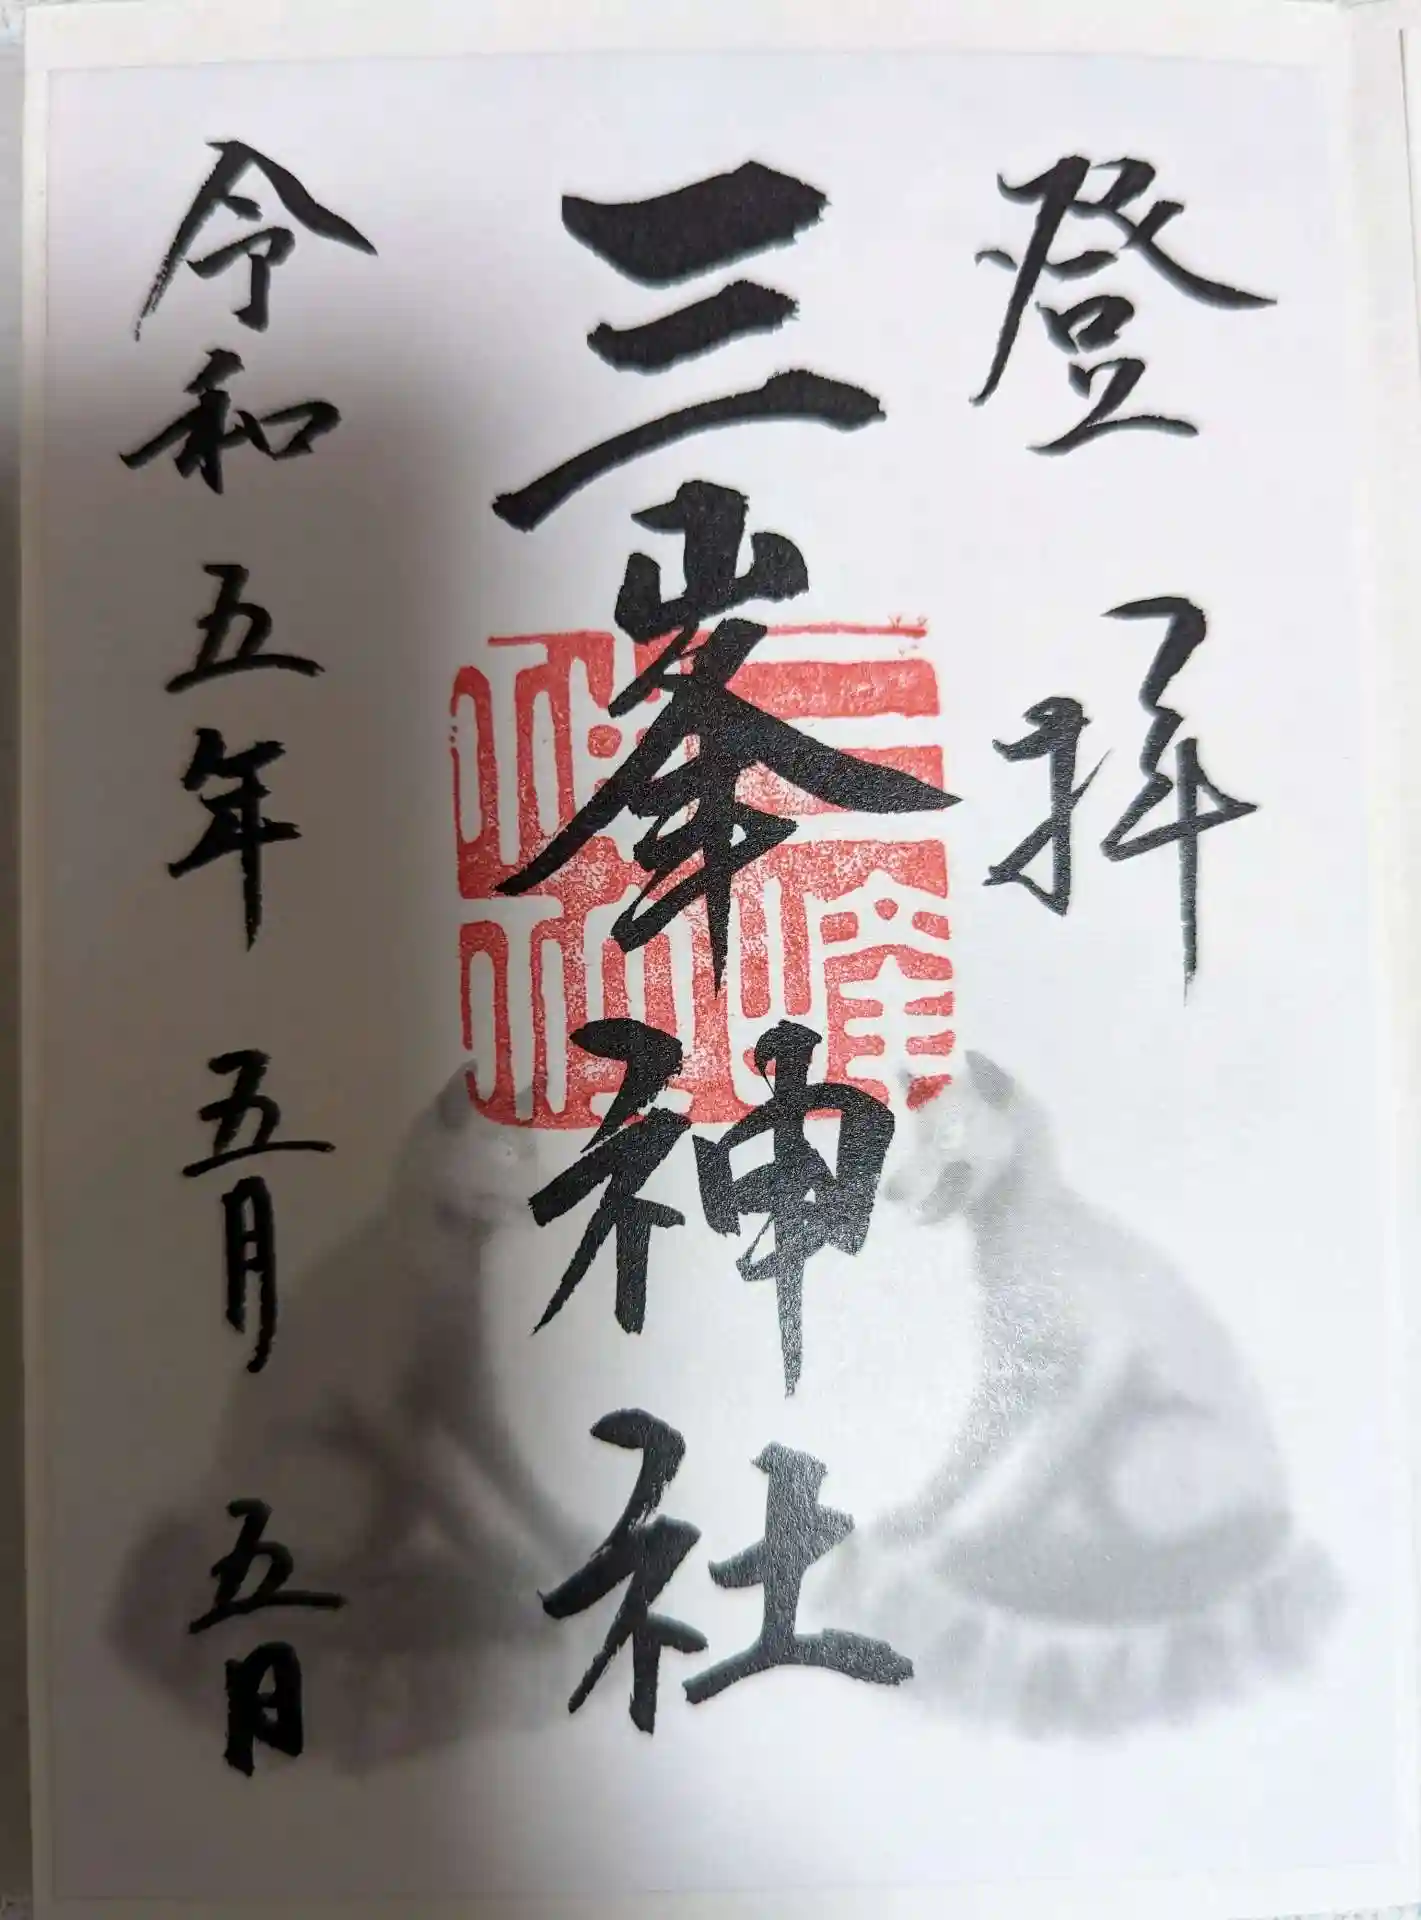 登拝
三峯神社
令和五年 五月 五日